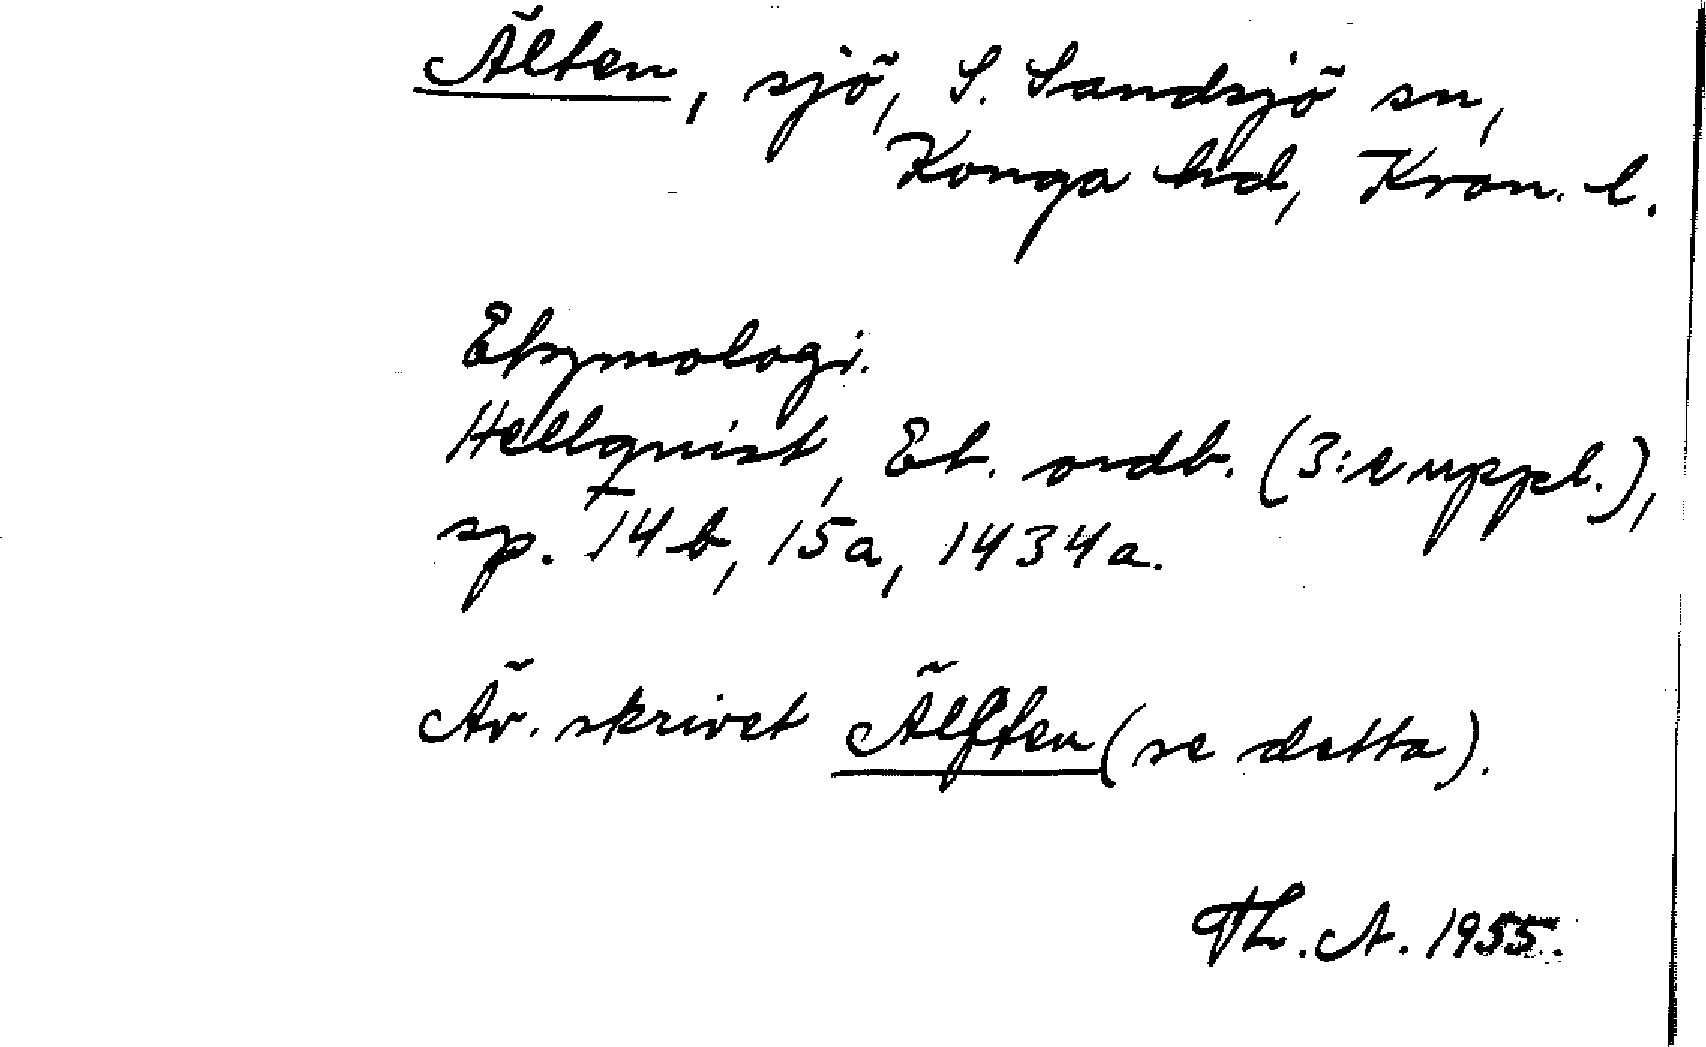 Älten, sjö, S. Sandsjö sn,
Konga hd, Kron. l.
Etymologi.
Hellquist, Et. ordb. (3:e uppl.),
sp. 14 b, 15 a, 1434 a.
Äv. skrivet Älften (se detta).
Th. A. 1955.